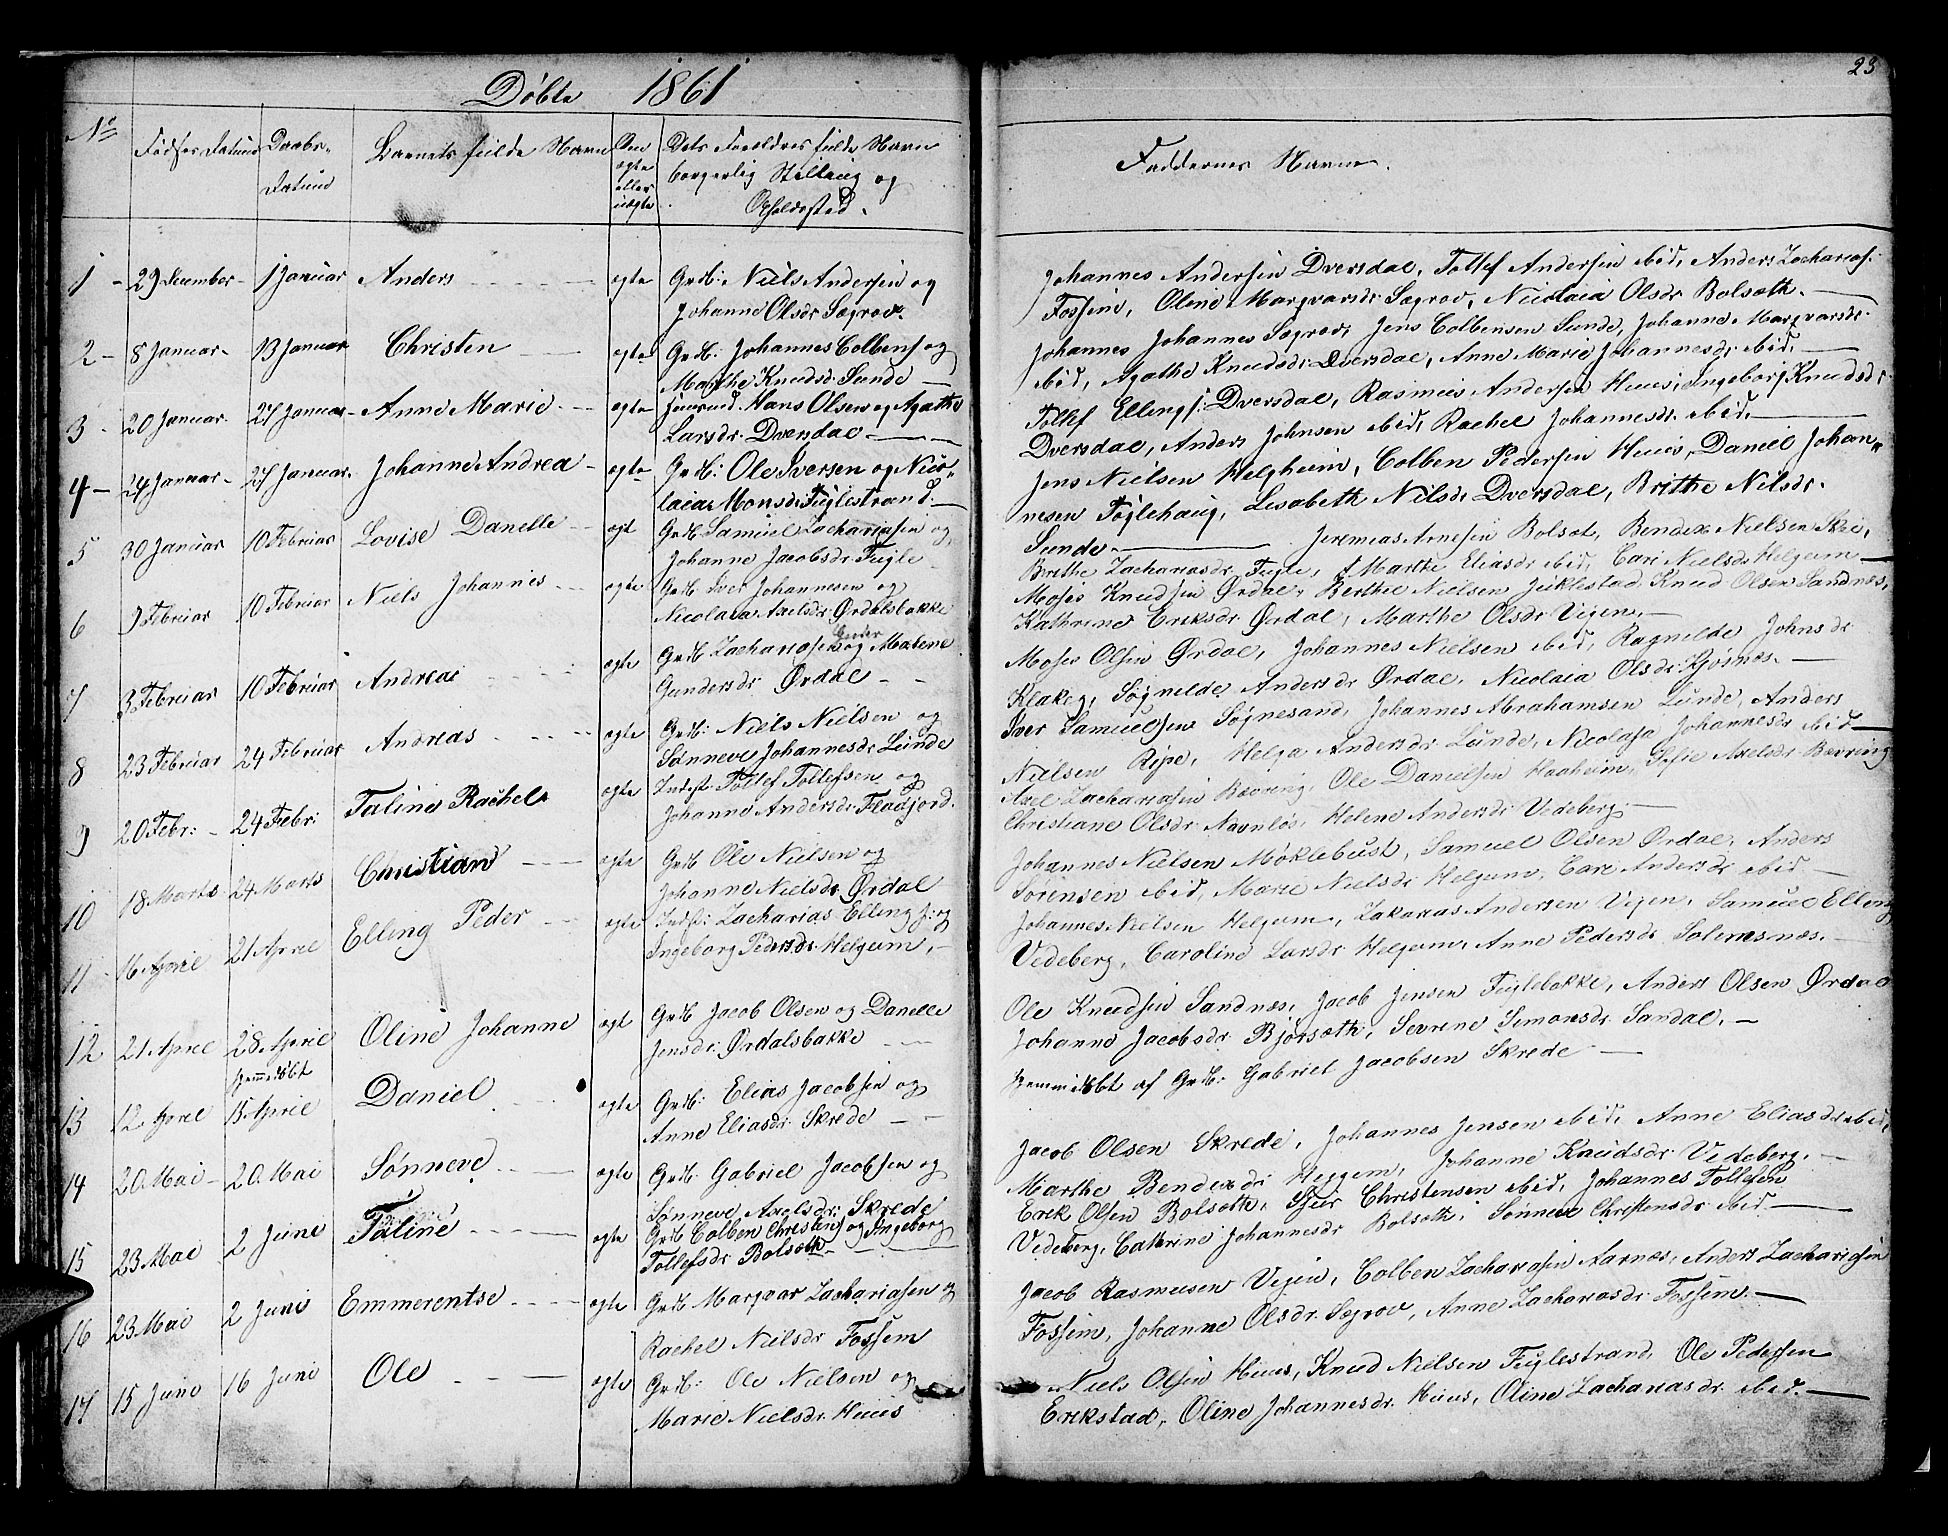 Døbte 1861
No
Fødsels Datum
Daabs-
Datum
Barnets fulde Navn
Om
ægte
eller
uægte
Dets Forældres fulde Navn
borgerlig Stilling og
Opholdssted.
1 - 29 December - 1 Januar Anders ægte Grdb: Niels Andersen og
Johanne Olsdr Søgrov.
2 - 8 Januar - 13 Januar Christen ægte Grdb: Johannes Colbens: og
Marthe Knudsdr Sunde
3 - 20 Januar - 27 Januar - Anne Marie ægte Hans Olsen og Agathe
Larsdr. Dversdal
4 - 24 Januar - 27 Januar - Johanne Andrea ægte Grdb: Ole Iversen og Nico-
laia Monsdr Fuglestrand
5 30 Januar 10 Februar Lovise Danelle ægt Grdb Samuel Zachariasen og
Johanne Jacobsdr Fugle
6 9 Februar 10 Februar Niels Johannes ægte Grdb Iver Johannesen og
Nicolaia Axelsdr Ørdalsbakke
7 3 Februar 10 Februar Andreas ægte Grdb Zachariasen og Malene
Gundersdr Ørdal
8 23 Februar 24 Februar Andreas ægte Grdb: Niels Nielsen og
Sønneve Johannesdr Lunde
9 20 Febr: - 24 Febr: Taline Rachel ægte Indst: Tollef Tollefsen og
Johanne Andersdr Fladjord.
10 18 Marts 24 Marts Christian ægte Grdb Ole Nielsen og
Johanne Nielsdr Ørdal
11 - 16 April 21 April Elling Peder ægte Indst: Zacharias Ellings: og
Ingeborg Pedersdr Helgum,
12 21 April 28 April Oline Johanne ægt Grdb Jacob Olsen og Danelle
Jensdr: Ørdalsbakke
hjemmedøbt
13 12 April 15 April Daniel ægte Grdb: Elias Jacobsen og
Anne Eliasdr Skrede
14 20 Mai - 20 Mai Sønneve ægte Grdb: Gabriel Jacobsen og
Sønneve Axelsdr: Skrede
15 23 Mai 2 June Taline ægte Grdb Colben Christens og Ingeborg
Tollefsdr Bolsæth
16 23 Mai 2 Juni Emmerentse ægte Grdb Marqvar Zachariasen og
Rachel Nielsdr Fossem
17 15 Juni 16 Juni Ole ægte Grdb: Ole Nielsen og
Marie Nielsdr. Huus
23
Faddernes Navne.
Johannes Andersen Dversdal, Tollef Andersen ibid, Anders Zacharias:
Fossem, Oline Marqvarsdr Søgrov, Nicolaia Olsdr Bolsæth.
Johannes Johannes Søgrov, Jens Colbensen Sunde, Johanne Marqvarsdr.
ibid, Agathe Knudsdr Dversdal, Anne Marie Johannesdr ibid.
Tollef Ellings: Dversdal, Rasmus Andersen Huus, Ingeborg Knudsdr
Dversdal, Anders Johnsen ibid, Rachel Johannesdr. ibid.
Jens Nielsen Helgheim, Colben Pedersen Huus, Daniel Johan-
nesen Fuglehaug, Lisabeth Nilsdr Dversdal, Brithe Nilsdr.
Sunde. Jeremias Arnesen Bolsæt, Bendix Nielsen Skei,
Brithe Zachariasdr Fugle, Marthe Eliasdr ibid, Cari Nielsdr Helgum
Moses Knudsen Ørdal, Berthe Nielsen Juklestad, Knud Olsen Sandnæs,
Kathrine Eriksdr Ørdal, Marthe Olsdr Vigen.
Moses Olsen Ørdal, Johannes Nielsen ibid, Ragnilde Johnsdr
Klakeg, Søgnilde Andersdr Ørdal, Nicolaia Olsdr Kjøsnæs.
Iver Samuelsen Søgnesand, Johannes Abrahamsen Lunde, Anders
Nielsen Ripe, Helga Andersdr Lunde, Nicolaia Johannesdr ibid
Axel Zachariasen Bævring, Ole Danielsen Haaheim, Sesie Axelsdr Bævring
Christiane Olsdr Navnløs, Helene Andersdr Vedeberg.
Johannes Nielsen Møklebust, Samuel Olsen Ørdal, Anders
Sørensen ibid, Marie Nielsdr Helgum, Cari Andersdr ibid
Johannes Nielsen Helgum, Zakarias Andersen Vigen, Samuel Elling
Vedeberg, Caroline Larsdr Helgum, Anne Pedersdr Solemsnæs.
Ole Knudsen Sandnæs, Jacob Jensen Fuglebakke, Anders Olsen Ørdal
Johanne Jacobsdr Bjørsæth, Severine Simonsdr Sandal.
Hjemmedøbt af Grdb: Gabriel Jacobsen Skrede
Jacob Olsen Skrede, Johannes Jensen ibid, Anne Eliasdr ibid,
Marthe Bendixdr Heggem, Johanne Knudsdr Vedeberg.
Erik Olsen Bolsæth, Sjur Christensen ibid, Johannes Tollefsen
Vedeberg, Cathrine Johannesdr Bolsæth, Sønneve Christensdr ibid.
Jacob Rasmusen Vigen, Colben Zachariasen Aarnæs, Anders Zachariasen
Fossem, Johanne Olsdr Søgrov, Anne Zachariasdr Fossem.
Niels Olsen Huus, Knud Nielsen Fuglestrand, Ole Pedersen
Erikstad, Oline Johannesdr. Huus, Oline Zachariasdr ibid.